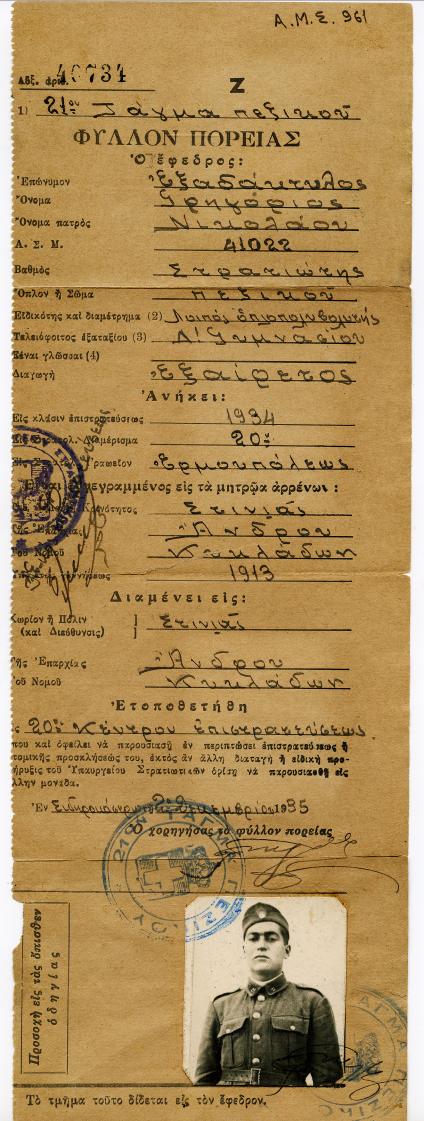 Α.Μ.Σ. 961
Αὔξ. ἀριθ. 40734
Ζ
1) 21ον Τάγμα πεζικοῦ
ΦΥΛΛΟΝ ΠΟΡΕΙΑΣ
Ὁ ἔφεδρος:
Ἐπώνυμον Ἐξαδάκτυλος
Ὄνομα Γρηγόριος
Ὄνομα πατρὸς Νικολάου
Α. Σ. Μ. 41022
Βαθμὸς Στρατιώτης
Ὅπλον ἢ Σῶμα πεζικοῦ
Εἰδικότης καὶ διαμέτρημα (2) Λοιπὸς ὁπλοπολυβολητής
Τελειόφοιτος ἑξαταξίου (3) Α! Γυμνασίου
Ξέναι γλῶσσαι (4)
Διαγωγὴ Ἐξαίρετος
Ἀνήκει:
Εἰς κλάσιν ἐπιστρατεύσεως 1934
διαμέρισμα 20ον
Γραφεῖον Ἑρμουπόλεως
Εἶναι ἐγγεγραμμένος εἰς τὰ μητρῷα ἀρρένων:
Κοινότητος Στενιάς
Τῆς Ἐπαρχίας Ἄνδρου
Τοῦ Νομοῦ Κυκλάδων
γεννήσεως 1913
Διαμένει εἰς:
Χωρίον ἢ Πόλιν
(καὶ Διεύθυνσις) ] Στενιάς
Τῆς Ἐπαρχίας Ἄνδρου
Τοῦ Νομοῦ Κυκλάδων
Ἐτοποθετήθη
20ον Κέντρον Ἐπιστρατεύσεως
που καὶ ὀφείλει νὰ παρουσιασθῇ ἐν περιπτώσει ἐπιστρατεύσεως ἢ
τομικῆς προσκλήσεώς του, ἐκτὸς ἂν ἄλλη διαταγὴ ἢ εἰδικὴ προ-
ήρυξις τοῦ Ὑπουργείου Στρατιωτικῶν ὁρίσῃ νὰ παρουσιασθῇ εἰς
λλην μονάδα.
Ἐν 1935
Ὁ χορηγήσας τὸ φύλλον πορείας
21ΟΝ ΤΑΓΜΑ ΠΕΖΙΚΟΥ
Προσοχὴ εἰς τὰς ὄπισθεν
ὁδηγίας
ΤΑΓΜΑ ΠΕΖΙΚΟΥ
Τὸ τμῆμα τοῦτο δίδεται εἰς τὸν ἔφεδρον.